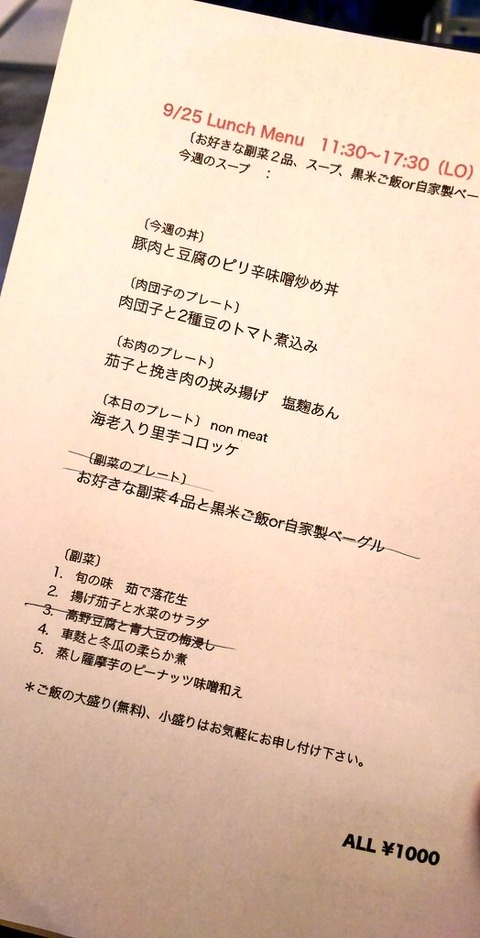 9/25 Lunch Menu 11:30〜17:30（LO）
〔お好きな副菜２品、スープ、黒米ご飯or自家製ベー
今週のスープ ：
〔今週の丼〕
豚肉と豆腐のピリ辛味噌炒め丼
〔肉団子のプレート〕
肉団子と2種豆のトマト煮込み
〔お肉のプレート〕
茄子と挽き肉の挟み揚げ 塩麹あん
〔本日のプレート〕 non meat
海老入り里芋コロッケ
〔副菜のプレート〕
お好きな副菜４品と黒米ご飯or自家製ベーグル
〔副菜〕
1. 旬の味 茹で落花生
2. 揚げ茄子と水菜のサラダ
3. 高野豆腐と青大豆の梅浸し
4. 車麩と冬瓜の柔らか煮
5. 蒸し薩摩芋のピーナッツ味噌和え
＊ご飯の大盛り(無料)、小盛りはお気軽にお申し付け下さい。
ALL ¥1000